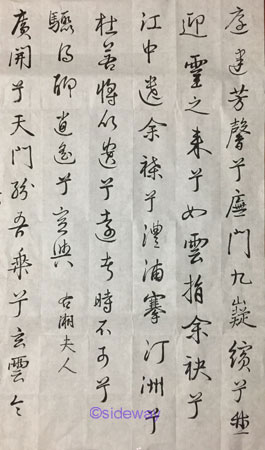 庭建芳馨兮廡門九嶷繽兮並
迎靈之來兮如雲捐余袂兮
江中遺余褋兮澧浦搴汀洲兮
杜若將以遺兮遠者時不可兮
驟得聊逍遙兮容與 右湘夫人
廣開兮天門紛吾乘兮玄雲令
©sideway